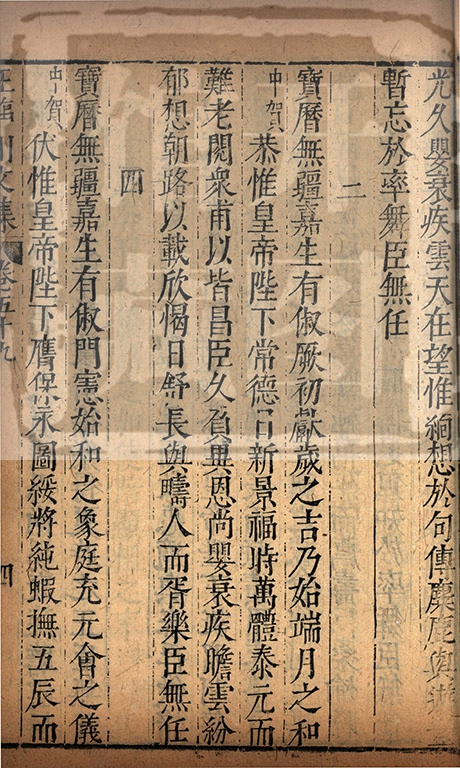 光久嬰衰疾雲天在望惟緬想於句傳麋鹿與遊
暫忘於率舞臣無任
二
寶曆無疆嘉生有俶厥初獻歲之吉乃始端月之和
中賀恭惟皇帝陛下常德日新景福時萬體泰元而
難老閱衆甫以皆昌臣久負異恩尚嬰衰疾瞻雲紛
郁想朝路以載欣愒日舒長與疇人而胥樂臣無任
四
寶曆無疆嘉生有俶門憲始和之象庭充元會之儀
中賀伏惟皇帝陛下膺保永圖綏將純嘏撫五辰而
臨川文集 卷五十九 四